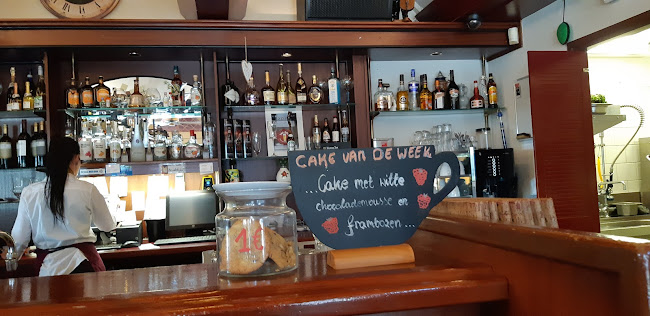 CAKE VAN DE WEEK
...Cake met witte
chocolademousse en
frambozen...
1€